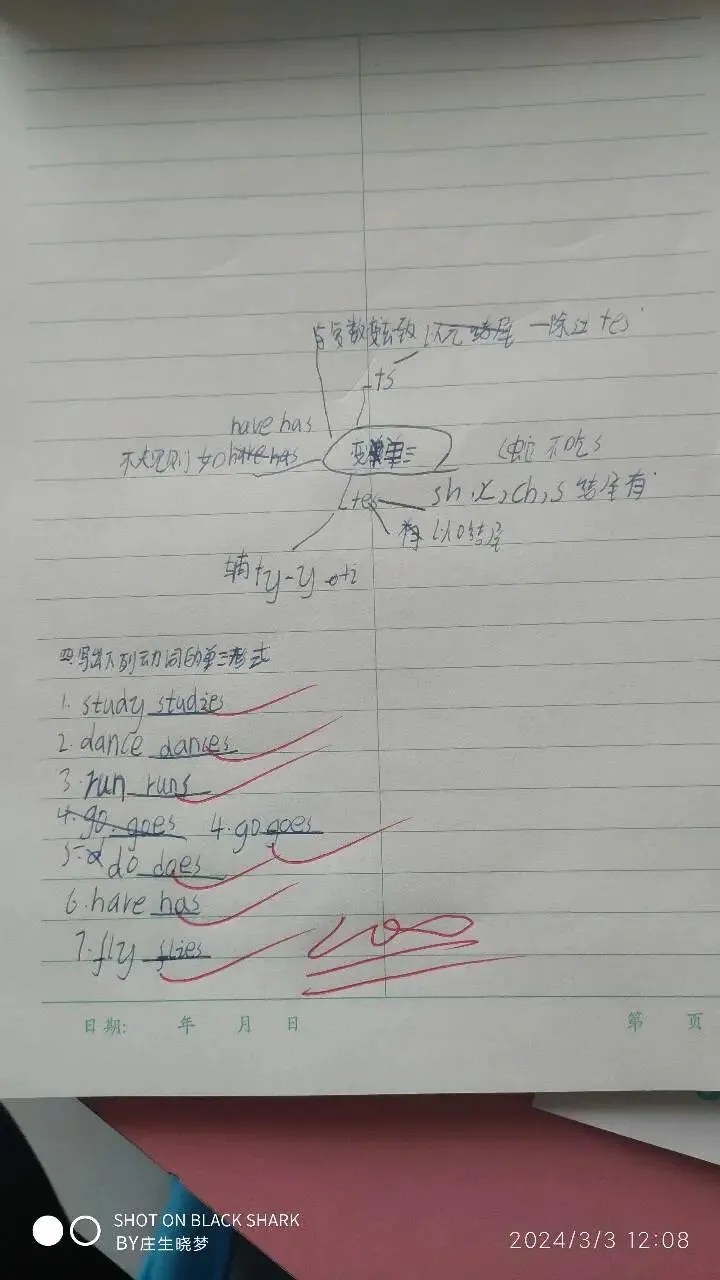 一除过 +es
+s
have has
不规则 如 have has
变单三
(蛇 不吃 s
+es
sh, x, ch, s 结尾有
以 o 结尾
辅+y-y
写出下列动词的单三形式
1. study studies
2. dance dances
3. run runs
4. go goes 4. go goes
5. d do does
6. have has
7. fly flies
100
日期: 年 月 日 第 页
SHOT ON BLACK SHARK
BY庄生晓梦
2024/3/3 12:08